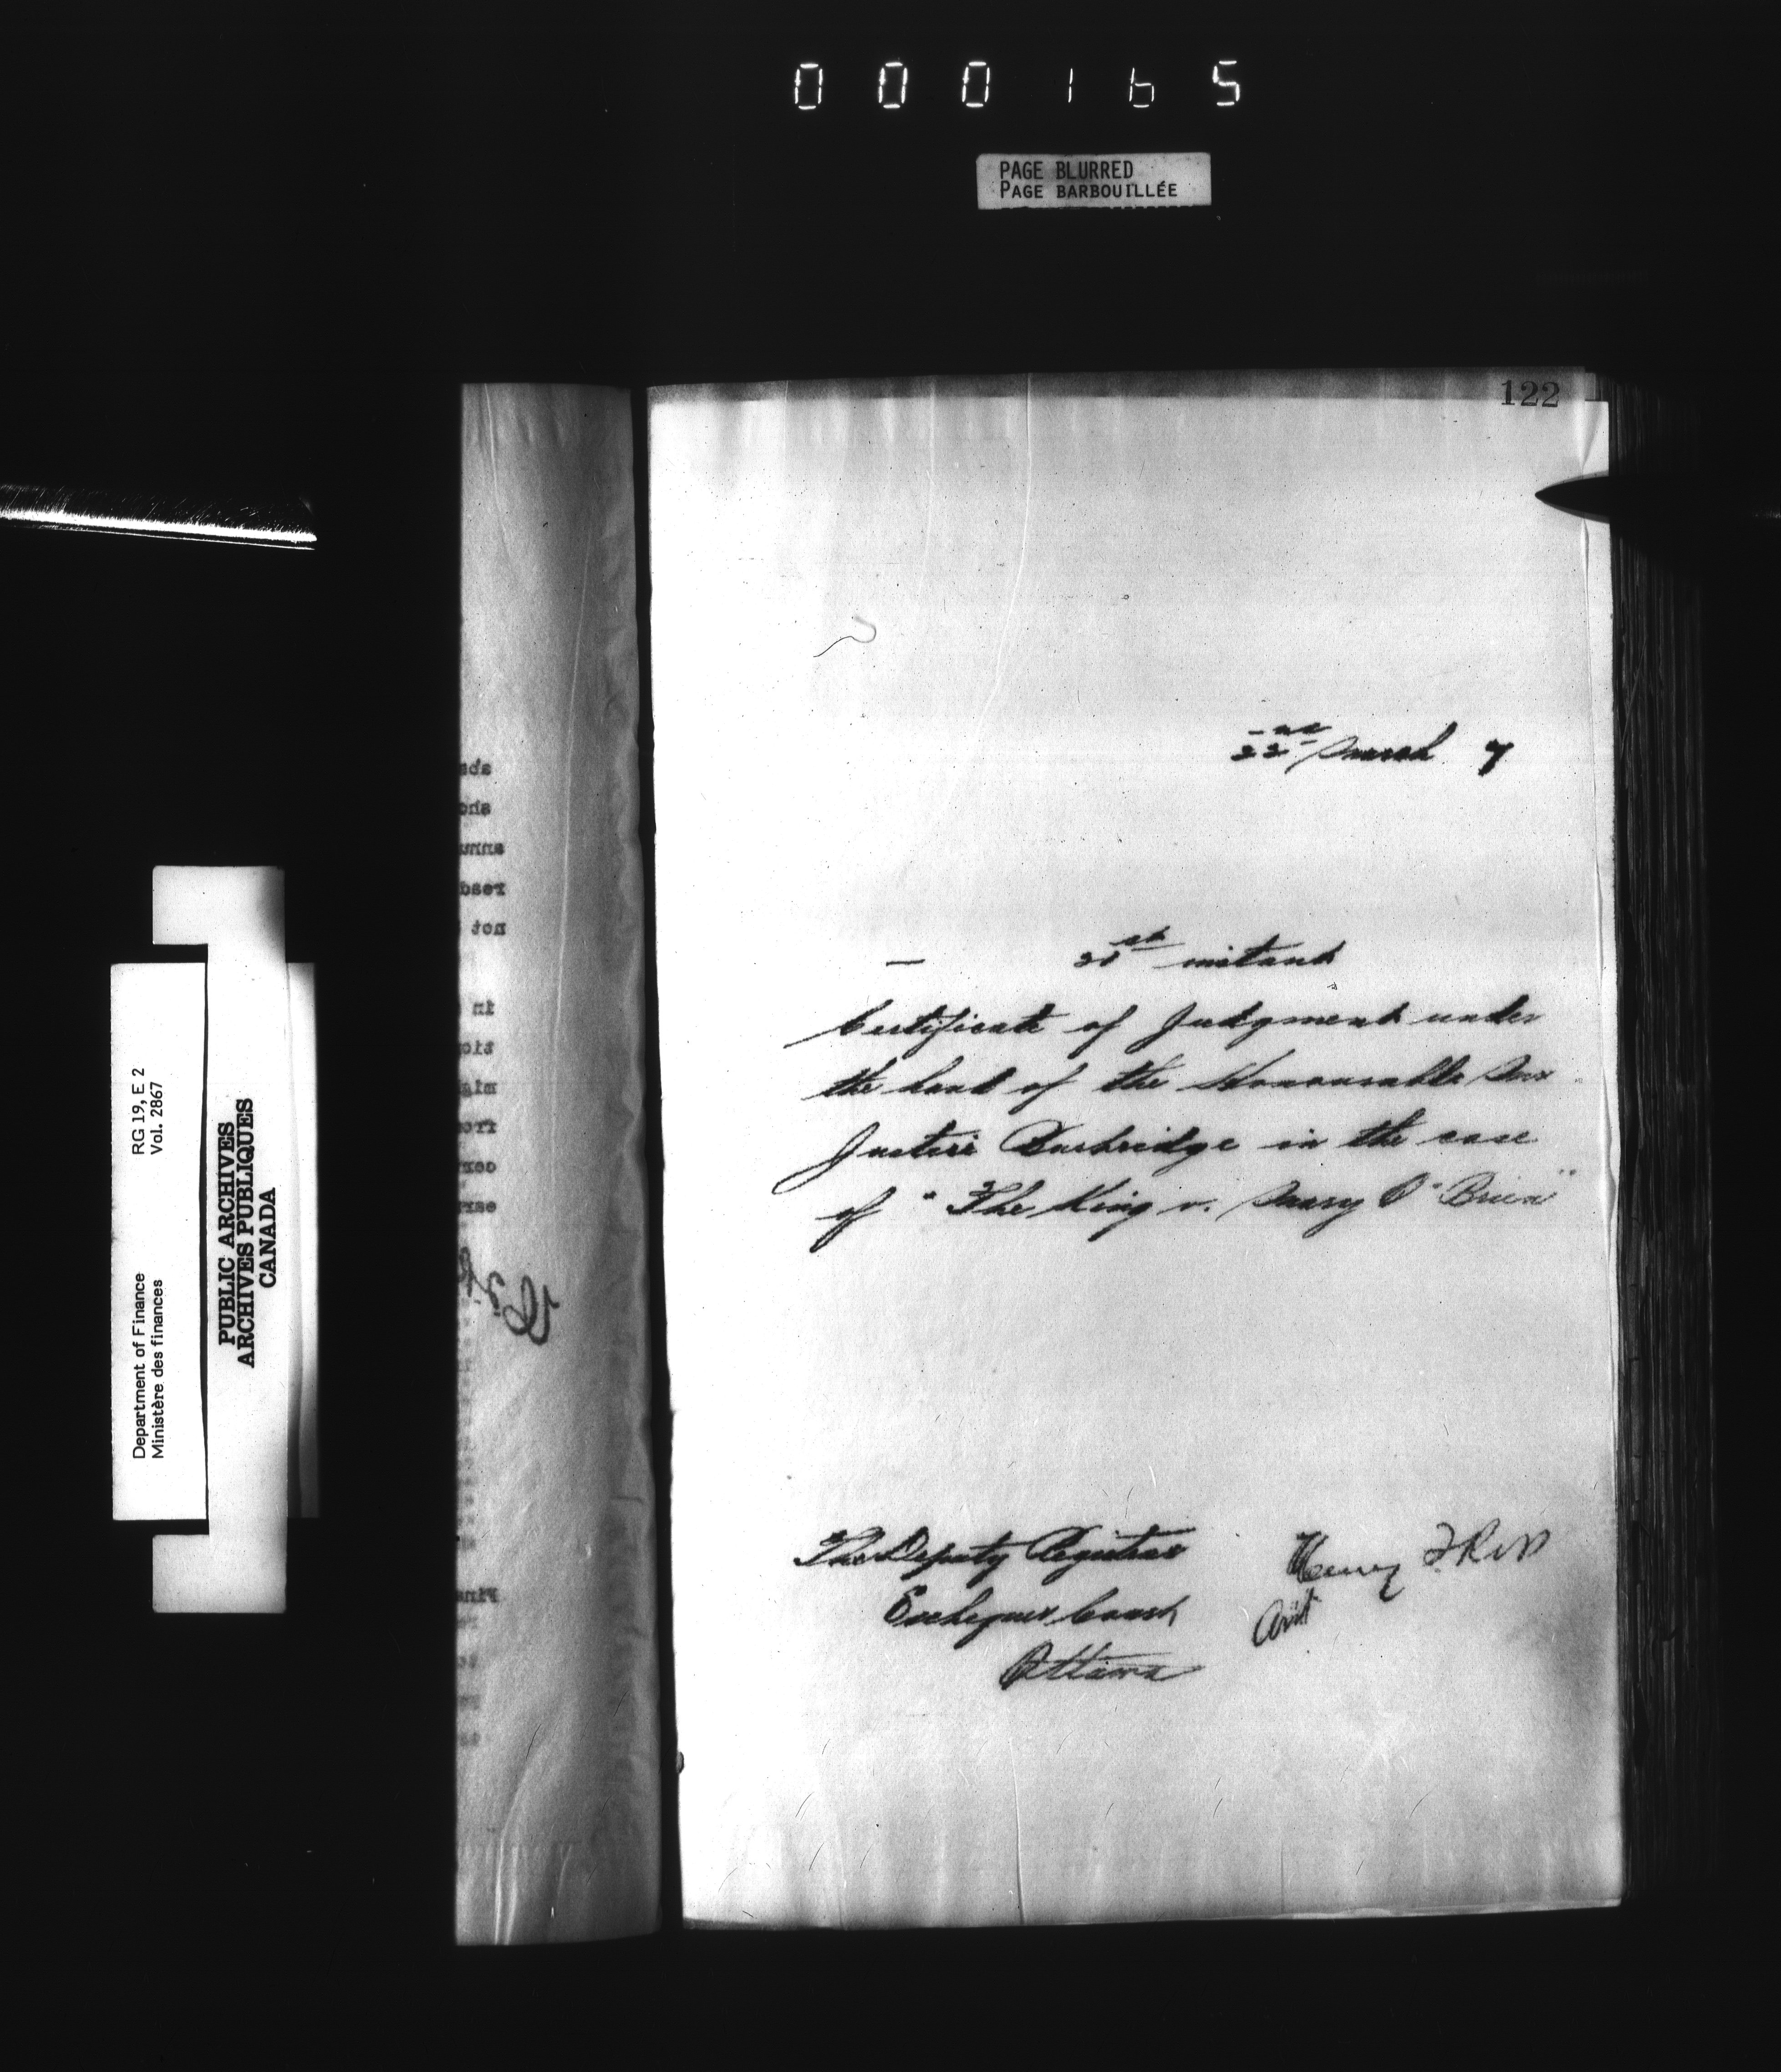 000165
PAGE BLURRED
PAGE BARBOUILLÉE
122
22nd March 7
— instant
Certificate of Judgment under
the hand of the Honourable Mr
Justice Burbridge in the case
of "The King v. Mary O'Brien"
The Deputy Registrar
Exchequer Court
Ottawa
Henry T Ross
Asst
Department of Finance RG 19, E 2
Ministère des finances Vol. 2867
PUBLIC ARCHIVES
ARCHIVES PUBLIQUES
CANADA